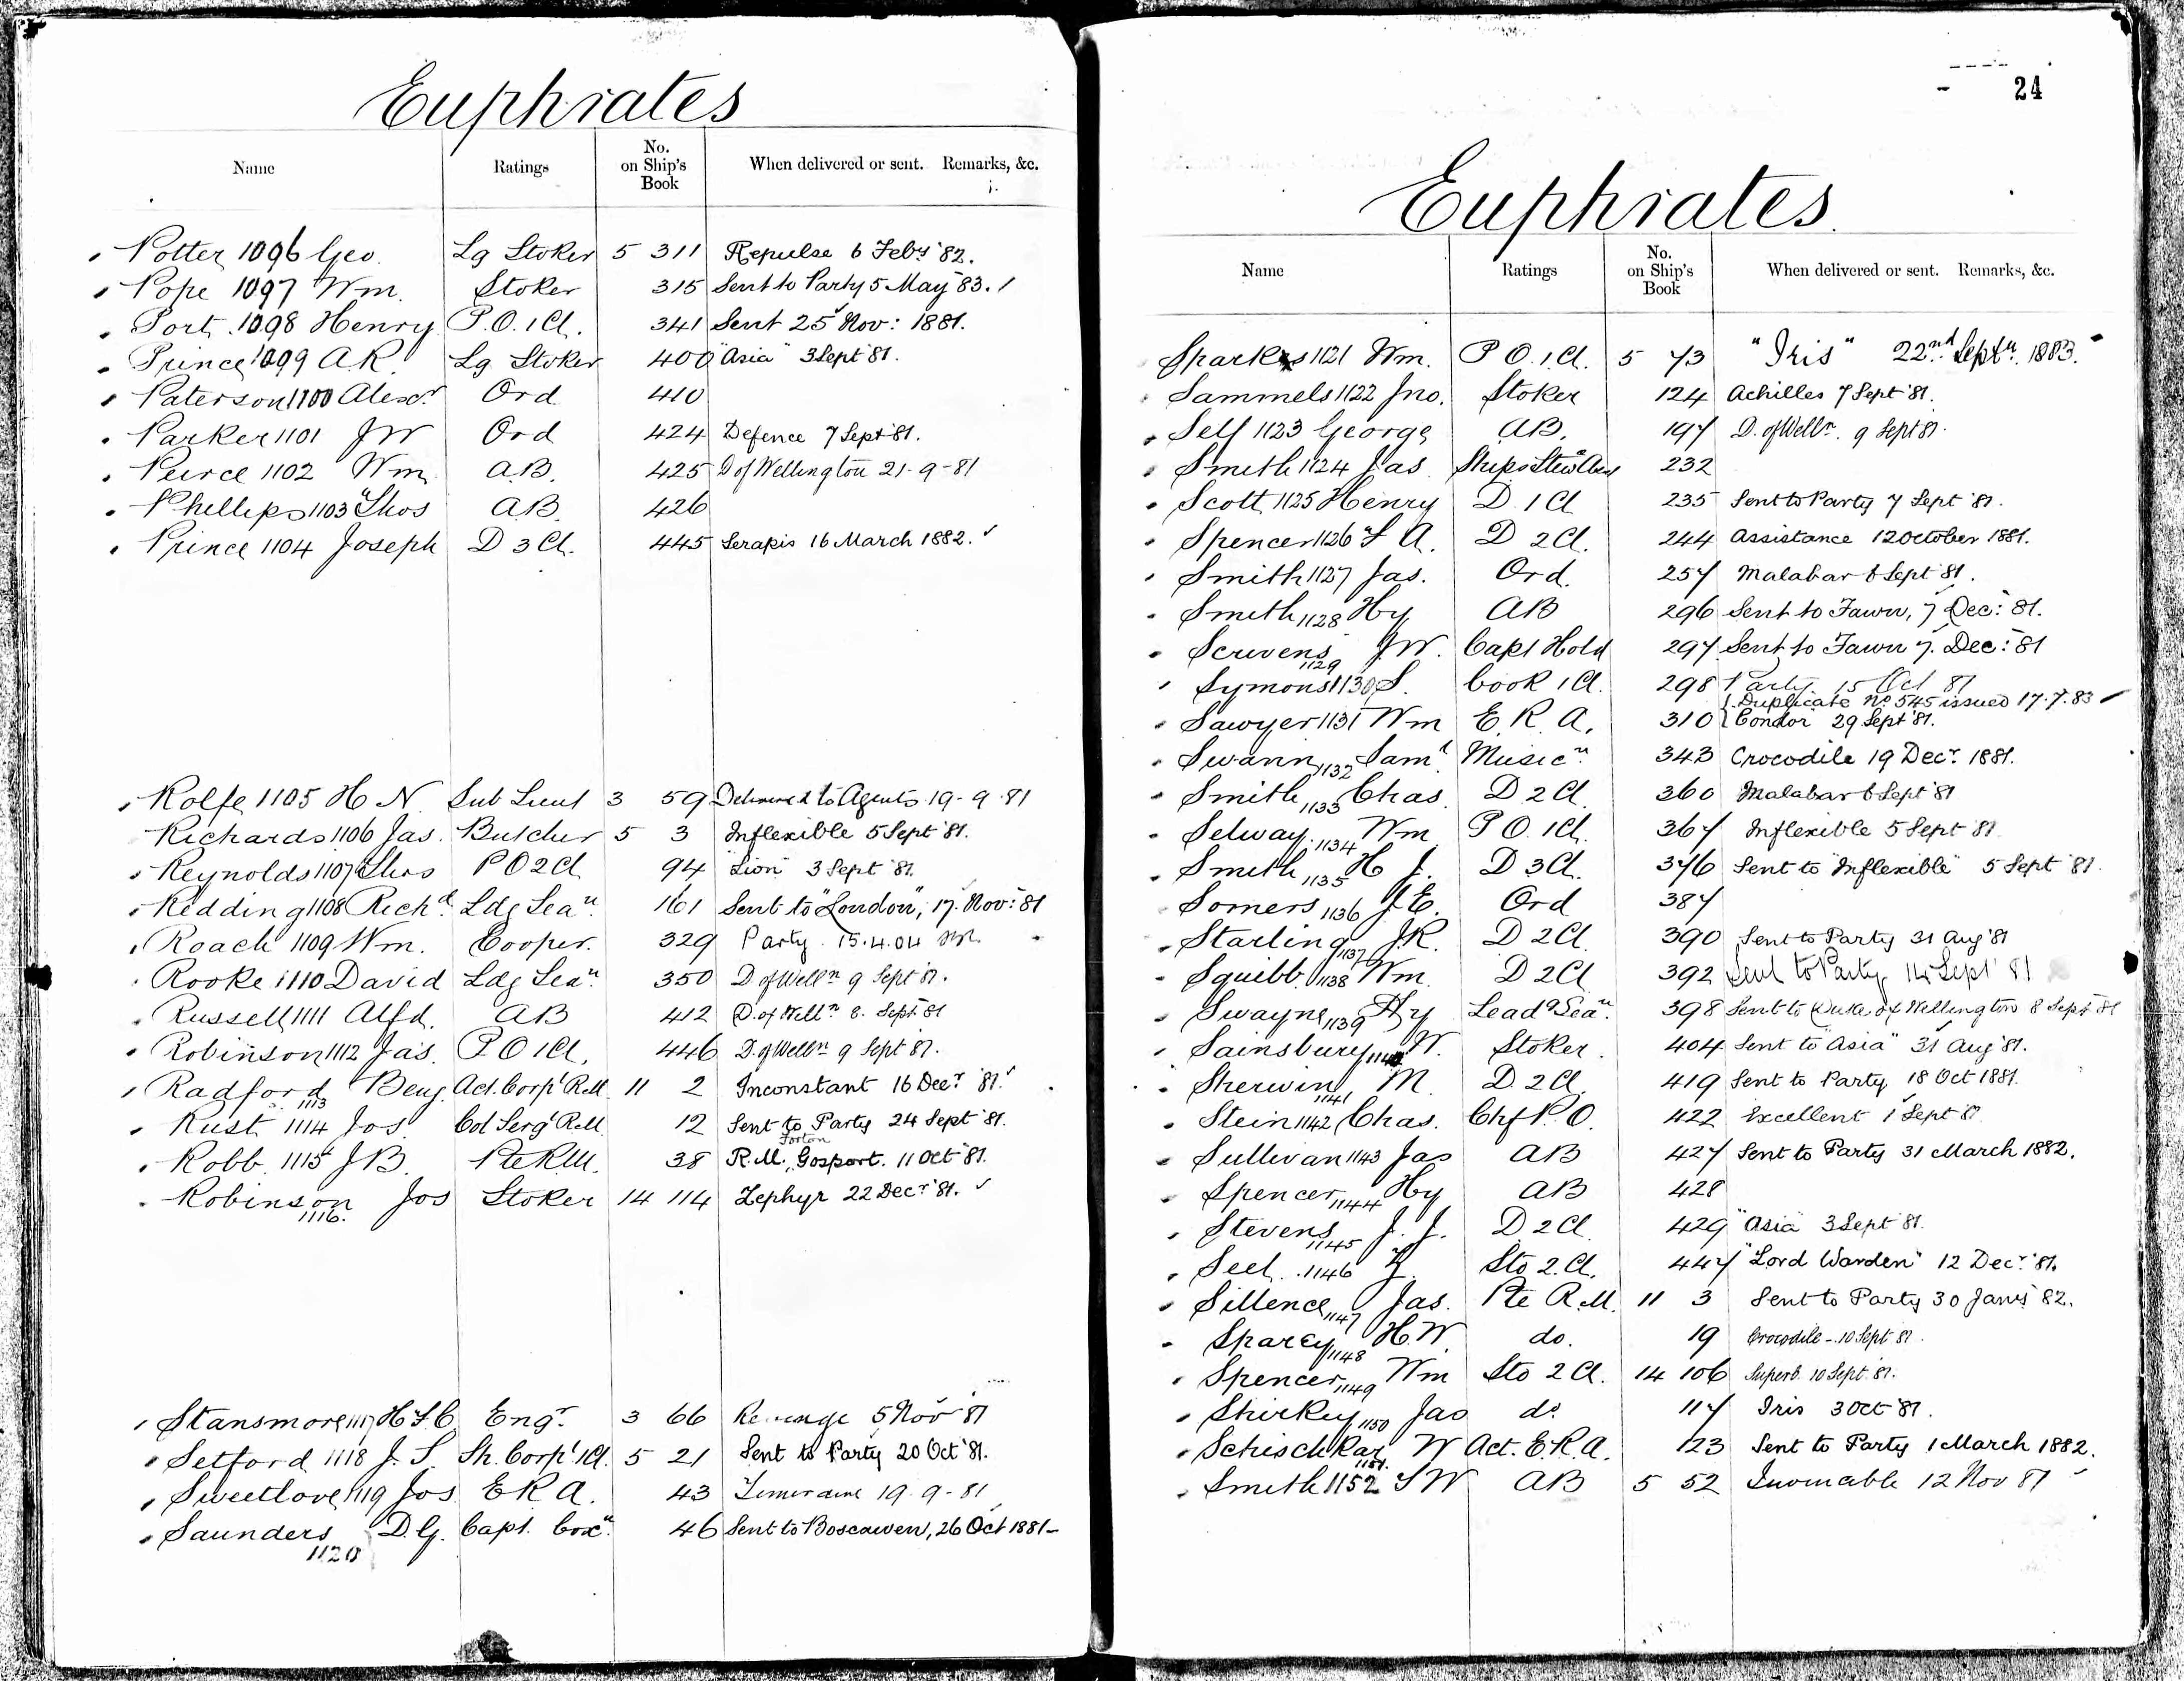 Euphrates
Name Ratings No. on Ship's Book When delivered or sent. Remarks, &c.
Potter 1096 Geo. Lg Stoker 5 311 Repulse 6 Feby '82.
Pope 1097 Wm. Stoker 315 Sent to Party 5 May '83.
Port 1098 Henry P.O. 1 Cl. 341 Sent 25 Nov: 1881.
Prince 1099 A.R. Lg Stoker 400 "Asia" 3 Sept '81.
Paterson 1100 Alexr Ord 410
Parker 1101 JW Ord 424 Defence 7 Sept 81.
Peirce 1102 Wm A.B. 425 D of Wellington 21-9-81
Phillips 1103 Thos AB. 426
Prince 1104 Joseph D 3 Cl. 445 Serapis 16 March 1882.
Rolfe 1105 H N Sub Lieut 3 59 Delivered to Agents 19-9-81
Richards 1106 Jas. Butcher 5 3 Inflexible 5 Sept '81.
Reynolds 1107 Thos P O 2 Cl 94 "Lion" 3 Sept '81.
Redding 1108 Richd Ldg Sean 161 Sent to "London", 17. Nov: 81
Roach 1109 Wm. Cooper. 329 Party. 15.4.04
Rooke 1110 David Ldg Sean 350 D. of Welln 9 Sept '81.
Russell 1111 Alfd. AB 412 D. of Welln 8. Sept 81
Robinson 1112 Jas. P O 1 Cl. 446 D. of Welln 9 Sept '81.
Radford 1113 Benj. Act. Corpl R.M. 11 2 Inconstant 16 Decr '81.
Rust 1114 Jos Col Sergt R.M. 12 Sent to Party 24 Sept '81.
Robb 1115 JB. Pte R.M. 38 R.M., Forton Gosport. 11 Oct '81.
Robinson 1116. Jos Stoker 14 114 Zephyr 22 Decr '81.
Stansmore 1117 H F C Engr 3 66 Revenge 5 Nov 81
Setford 1118 J. S. Sh. Corpl 1 Cl. 5 21 Sent to Party 20 Oct '81.
Sweetlove 1119 Jos E R A. 43 Temeraire 19-9-81
Saunders 1120 D.G. Capt. Coxn 46 Sent to Boscawen, 26 Oct 1881-
24
Euphrates.
Name Ratings No. on Ship's Book When delivered or sent. Remarks, &c.
Sparks 1121 Wm. P O. 1 Cl. 5 73 "Iris" 22nd Septr. 1883.
Sammels 1122 Jno. Stoker 124 Achilles 7 Sept '81.
Self 1123 George AB. 197 D. of Wellr. 9 Sept 81.
Smith 1124 Jas. Ships Stewd Asst 232
Scott 1125 Henry D. 1 Cl 235 Sent to Party 7 Sept '81.
Spencer 1126 F A. D 2 Cl. 244 Assistance 12 October 1881.
Smith 1127 Jas. Ord. 257 Malabar 6 Sept '81.
Smith 1128 Hy AB 296 Sent to Fawn, 7 Dec: 81.
Scrivens 1129 JW. Capt Hold 297 Sent to Fawn 7. Dec: 81
Symons 1130 S. Cook 1 Cl. 298 Party 15 Oct 81
Duplicate No 545 issued 17.7.83
Sawyer 1131 Wm E. R. A. 310 Condor 29 Sept '81.
Swann 1132 Saml Musicn 343 Crocodile 19 Decr 1881.
Smith 1133 Chas. D 2 Cl. 360 Malabar 6 Sept '81
Selway 1134 Wm P O. 1 Cl. 367 Inflexible 5 Sept 81
Smith 1135 H J. D 3 Cl. 376 Sent to "Inflexible" 5 Sept 81.
Somers 1136 J.E. Ord 387
Starling 1137 J.R. D 2 Cl. 390 Sent to Party 31 Aug '81
Squibb 1138 Wm. D 2 Cl 392 Sent to Party 14 Sept 81
Swayne 1139 Hy Leadg Sean 398 Sent to Duke of Wellington 8 Sept 81
Sainsbury 1140 W. Stoker. 404 Sent to "Asia" 31 Aug '81.
Sherwin 1141 M. D. 2 Cl 419 Sent to Party 18 Oct 1881.
Stein 1142 Chas. Chf P. O. 422 Excellent 1 Sept 81
Sullivan 1143 Jas AB 427 Sent to Party 31 March 1882.
Spencer 1144 Hy AB 428
Stevens 1145 J. J. D 2 Cl 429 "Asia" 3 Sept '81.
Seel 1146 Sto 2. Cl. 447 "Lord Warden" 12 Decr '81.
Sillence 1147 Jas. Pte R.M. 11 3 Sent to Party 30 Jany 82.
Sparey 1148 H.W. do. 19 Crocodile - 10 Sept 81.
Spencer 1149 Wm Sto 2 Cl. 14 106 Superb 10 Sept '81.
Shirkey 1150 Jas do 117 Iris 3 Oct '81.
Schischkar 1151. W Act. E.R.A. 123 Sent to Party 1 March 1882.
Smith 1152 SW AB 5 52 Invincible 12 Nov 81